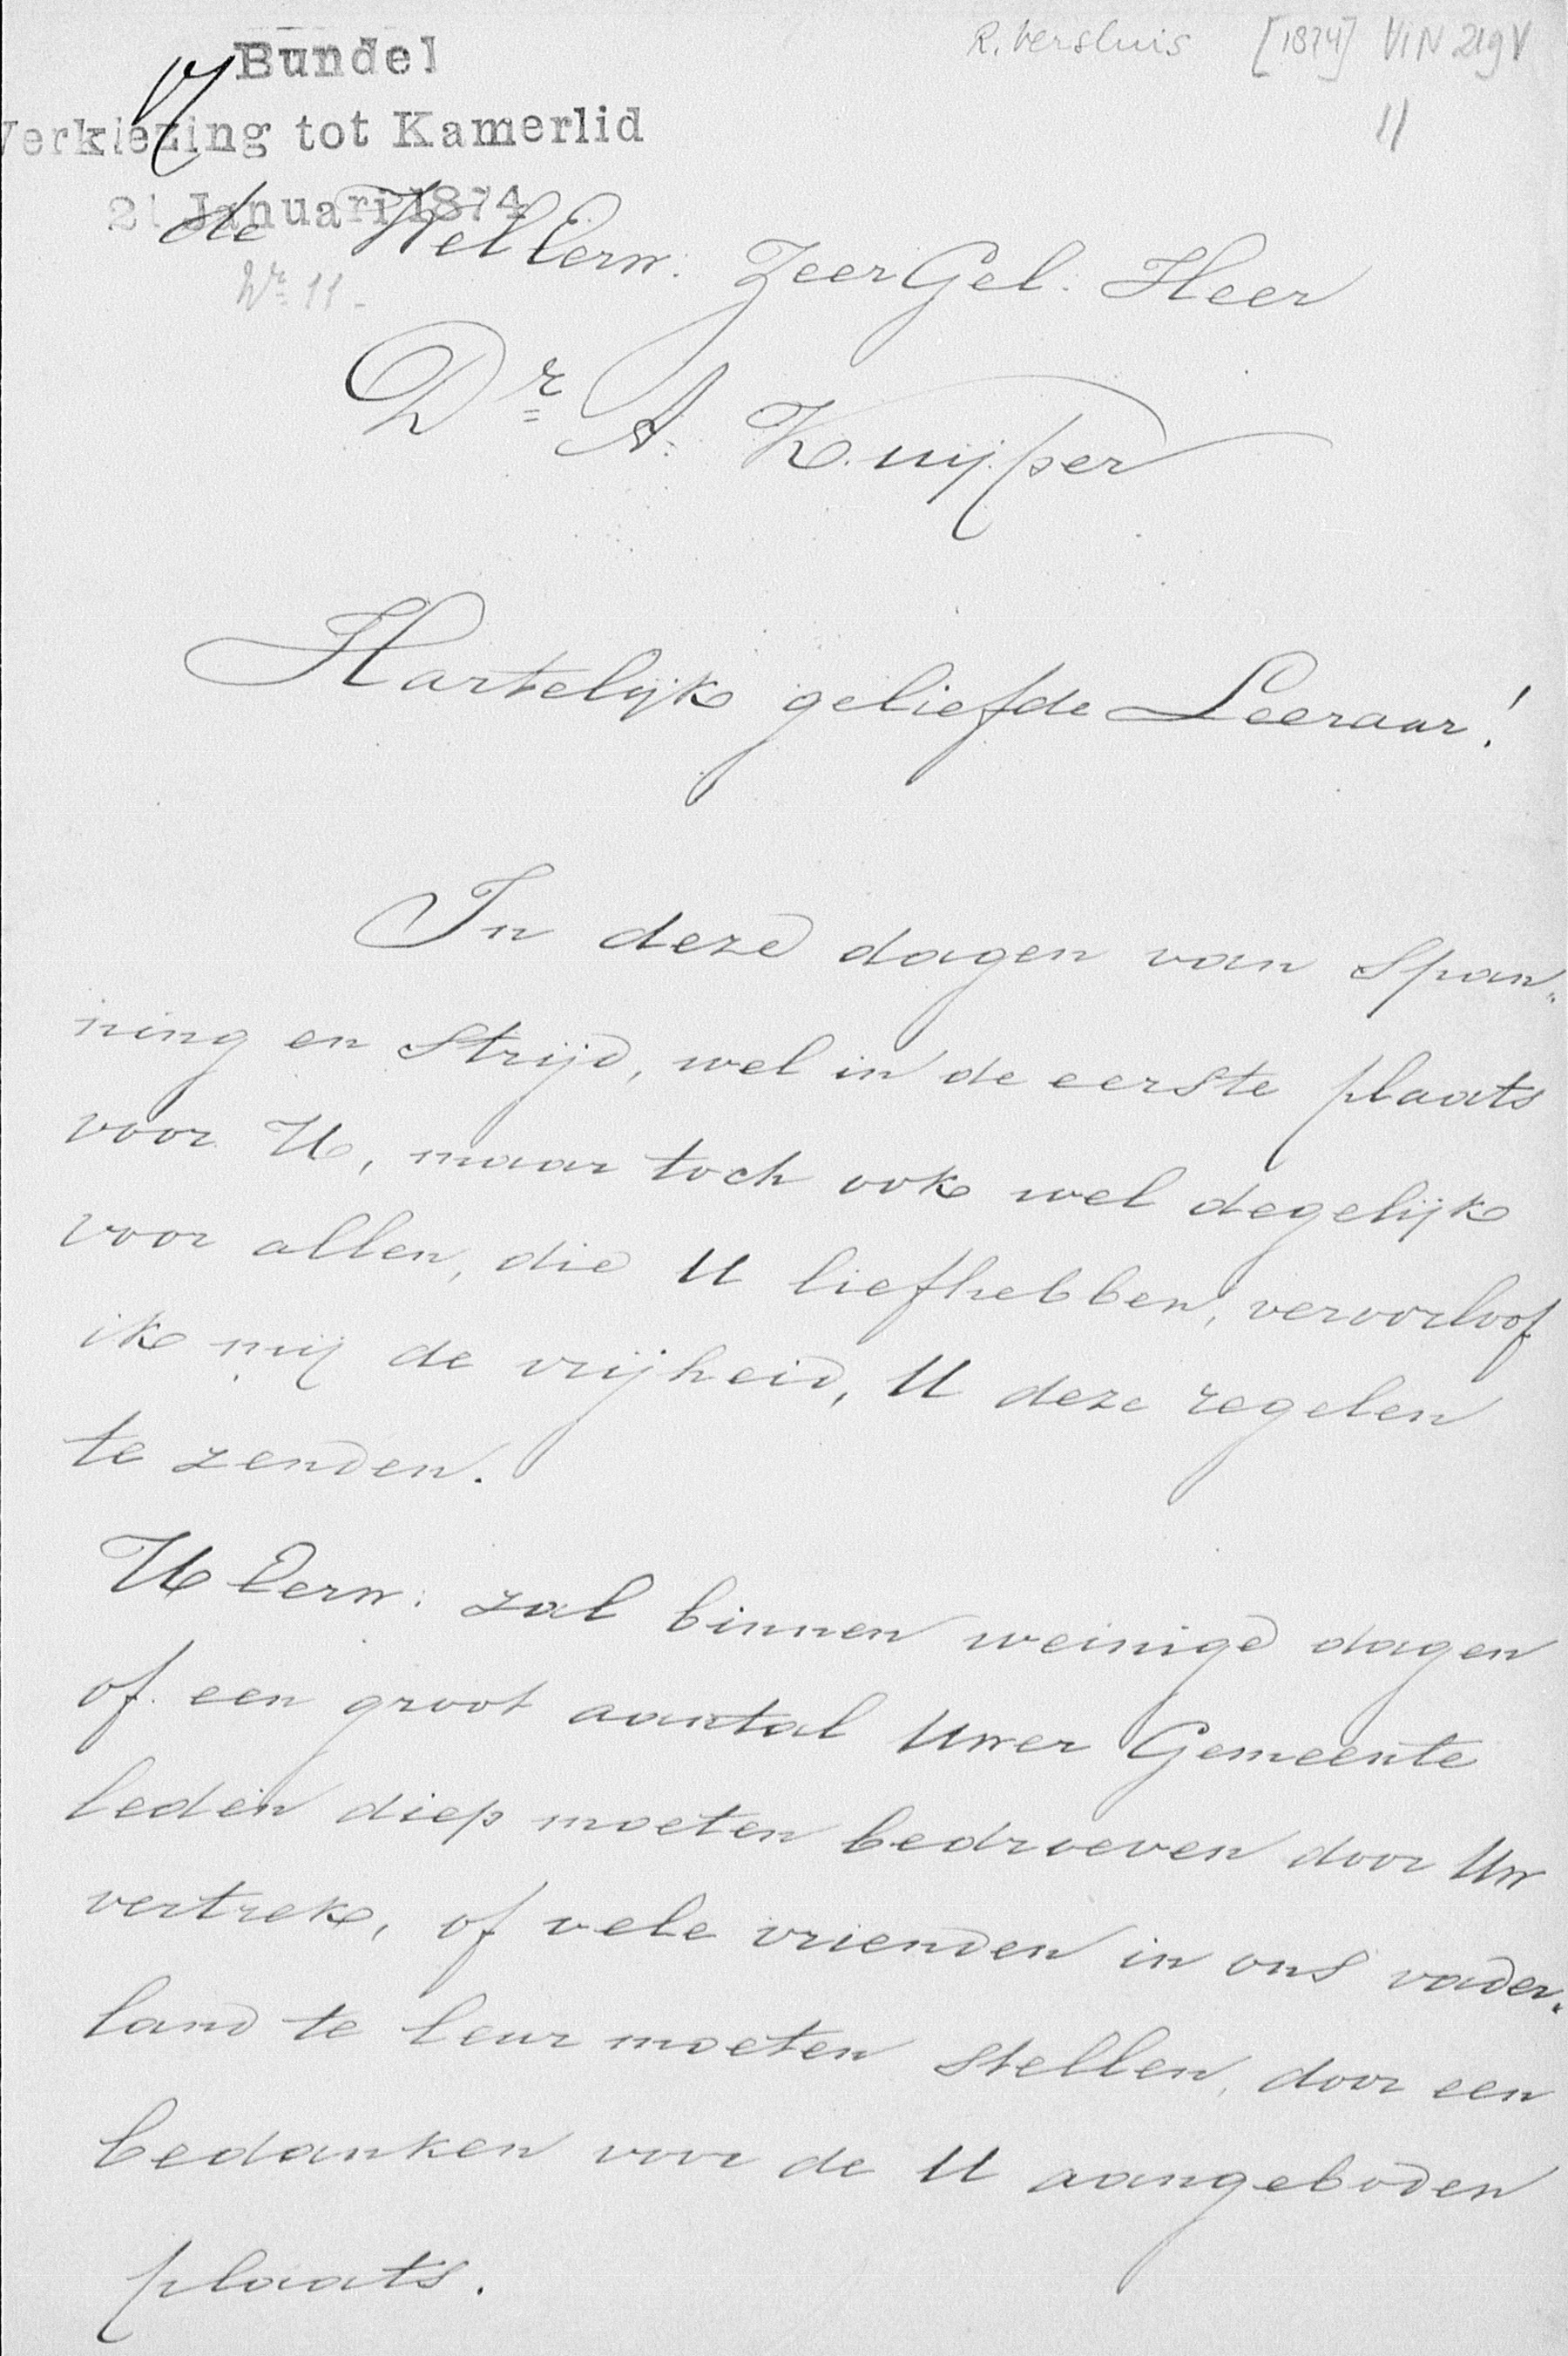 Bundel
Verkiezing tot Kamerlid
21 Januari 1874
Nr 11
R. Versluis [1874] VIN 219V
11
de WelEerw: ZeerGel: Heer
Dr A. Kuijper
Hartelijk geliefde Leeraar!
In deze dagen van span-
ning en strijd, wel in de eerste plaats
voor U, maar toch ook wel degelijk
voor allen, die U liefhebben, veroorloof
ik mij de vrijheid, U deze regelen
te zenden.
UEerw: zal binnen weinige dagen
of een groot aantal Uwer Gemeente
leden diep moeten bedroeven door Uw
vertrek, of vele vrienden in ons vader-
land te leur moeten stellen, door een
bedanken voor de U aangeboden
plaats.